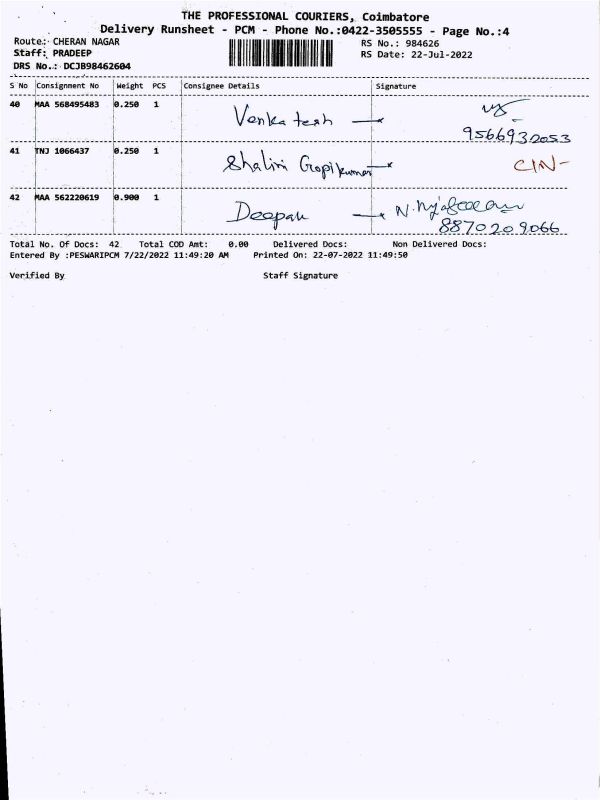 THE PROFESSIONAL COURIERS, Coimbatore
Delivery Runsheet - PCM - Phone No.:0422-3505555 - Page No.:4
Route: CHERAN NAGAR RS No.: 984626
Staff: PRADEEP RS Date: 22-Jul-2022
DRS No.: DCJB98462604
S No Consignment No Weight PCS Consignee Details Signature
40 MAA 568495483 0.250 1 Venkatesh
9566932053
41 TNJ 1066437 0.250 1 Shalini Gopikumar CIN-
42 MAA 562220619 0.900 1 Deepan
8870209066
Total No. Of Docs: 42 Total COD Amt: 0.00 Delivered Docs: Non Delivered Docs:
Entered By :PESWARIPCM 7/22/2022 11:49:20 AM Printed On: 22-07-2022 11:49:50
Verified By Staff Signature